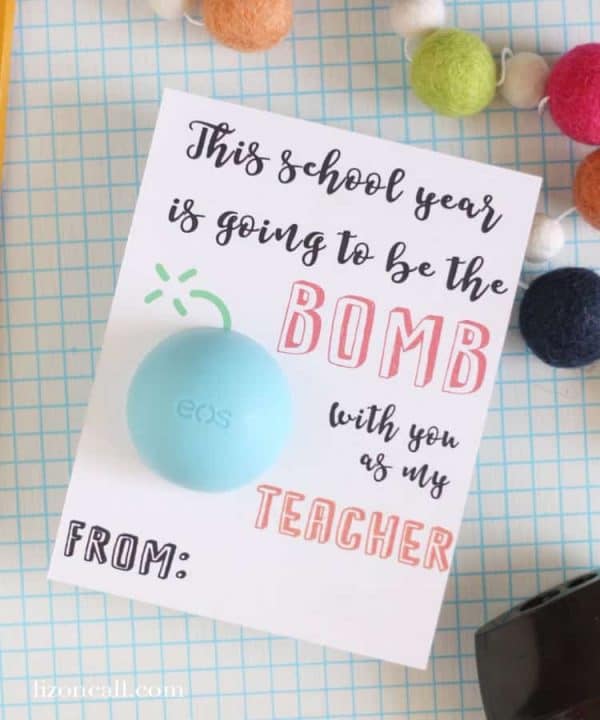 This school year
is going to be the
BOMB
eos
with you
as my
TEACHER
FROM:
lizoncall.com